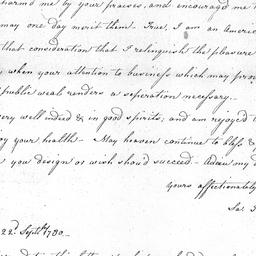 harm'd me by your praises, and encourag'd me
may one day merit them. True, I am an America
that consideration that I relinquish the pleasure
when your attention to business which may prov
public weal renders a seperation necessary.
very well indeed & in good spirits; and am rejoyced
oy your health. May heaven continue to bless &
you design or wish shou'd succeed. Adieu my d
yours affectionately
Sa.
22d. Septbr. 1780.